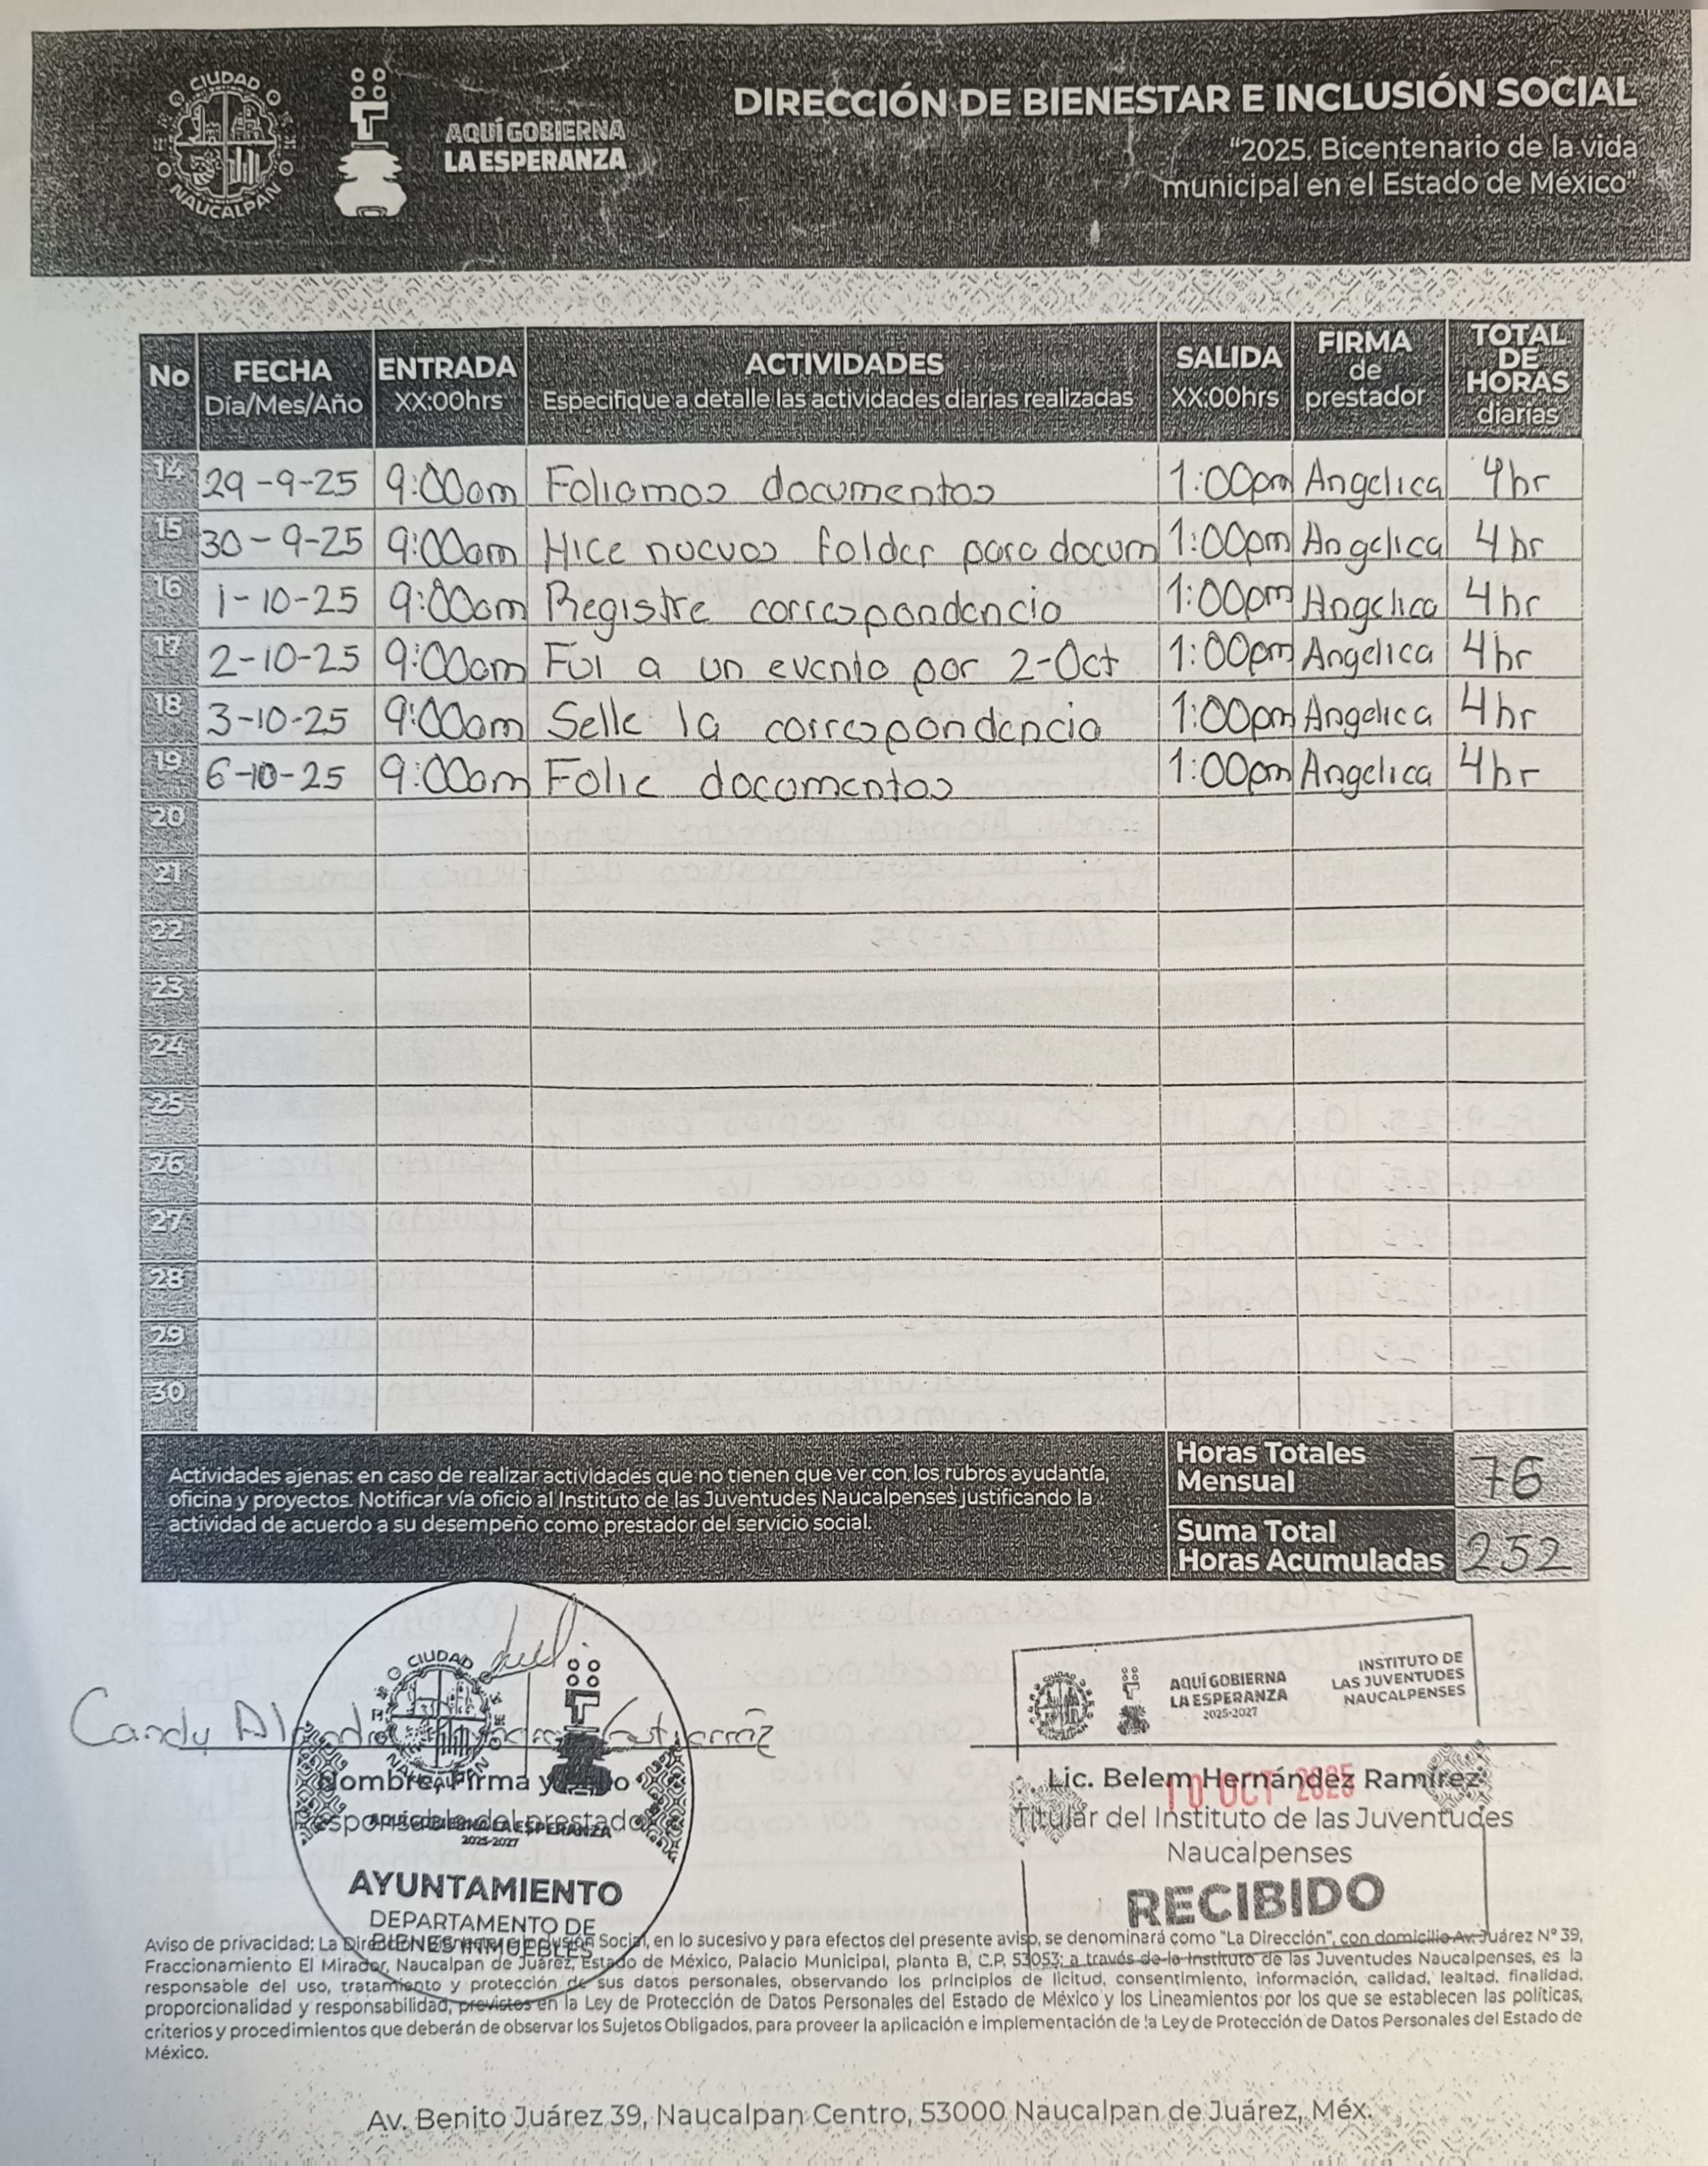 CIUDAD
NAUCALPAN
AQUÍ GOBIERNA
LA ESPERANZA
DIRECCIÓN DE BIENESTAR E INCLUSIÓN SOCIAL
"2025. Bicentenario de la vida
municipal en el Estado de México"
No FECHA Día/Mes/Año ENTRADA XX:00hrs ACTIVIDADES Especifique a detalle las actividades diarias realizadas SALIDA XX:00hrs FIRMA de prestador TOTAL DE HORAS diarias
14 29-9-25 9:00am Foliamos documentos 1:00pm Angelica 4hr
15 30-9-25 9:00am Hice nuevos folder para docum 1:00pm Angelica 4hr
16 1-10-25 9:00am Registre correspondencia 1:00pm Angelica 4hr
17 2-10-25 9:00am Fui a un evento por 2-Oct 1:00pm Angelica 4hr
18 3-10-25 9:00am Selle la correspondencia 1:00pm Angelica 4hr
19 6-10-25 9:00am Folie documentos 1:00pm Angelica 4hr
20
21
22
23
24
25
26
27
28
29
30
Actividades ajenas: en caso de realizar actividades que no tienen que ver con los rubros ayudantía,
oficina y proyectos. Notificar vía oficio al Instituto de las Juventudes Naucalpenses justificando la
actividad de acuerdo a su desempeño como prestador del servicio social.
Horas Totales
Mensual 76
Suma Total
Horas Acumuladas 252
CIUDAD
NAUCALPAN
Candy
Nombre, Firma y
Responsable del prestador
AQUÍ GOBIERNA LA ESPERANZA
2025-2027
AYUNTAMIENTO
DEPARTAMENTO DE
BIENES INMUEBLES
AQUÍ GOBIERNA
LA ESPERANZA
2025-2027
INSTITUTO DE
LAS JUVENTUDES
NAUCALPENSES
Lic. Belem Hernández Ramírez
10 OCT 2025
Titular del Instituto de las Juventudes
Naucalpenses
RECIBIDO
Aviso de privacidad: La Dirección de Bienestar e Inclusión Social, en lo sucesivo y para efectos del presente aviso, se denominará como "La Dirección", con domicilio Av. Juárez N° 39,
Fraccionamiento El Mirador, Naucalpan de Juárez, Estado de México, Palacio Municipal, planta B, C.P. 53053; a través de lo Instituto de las Juventudes Naucalpenses, es la
responsable del uso, tratamiento y protección de sus datos personales, observando los principios de licitud, consentimiento, información, calidad, lealtad, finalidad,
proporcionalidad y responsabilidad, previstos en la Ley de Protección de Datos Personales del Estado de México y los Lineamientos por los que se establecen las políticas,
criterios y procedimientos que deberán de observar los Sujetos Obligados, para proveer la aplicación e implementación de la Ley de Protección de Datos Personales del Estado de
México.
Av. Benito Juárez 39, Naucalpan Centro, 53000 Naucalpan de Juárez, Méx.